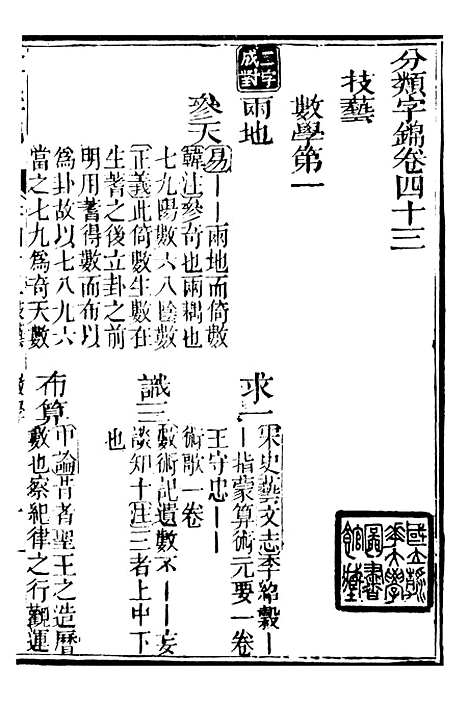 分類字錦卷四十三
技藝
數學第一
二字成對
兩地
參天
易——兩地而倚數
韓注參奇也兩耦也
七九陽數六八陰數
正義此倚數生數在
生蓍之後立卦之前
明用蓍得數而布以
爲卦故以七八九六
當之七九爲奇天數
求一
宋史藝文志李紹穀—
—指蒙算術元要一卷
王守忠——
術歌一卷
識三
數術記遺數不——妄
談知十注三者上中下
也
布算
中論昔者聖王之造曆
數也察紀律之行觀運
國立清
華大學
圖書
館藏